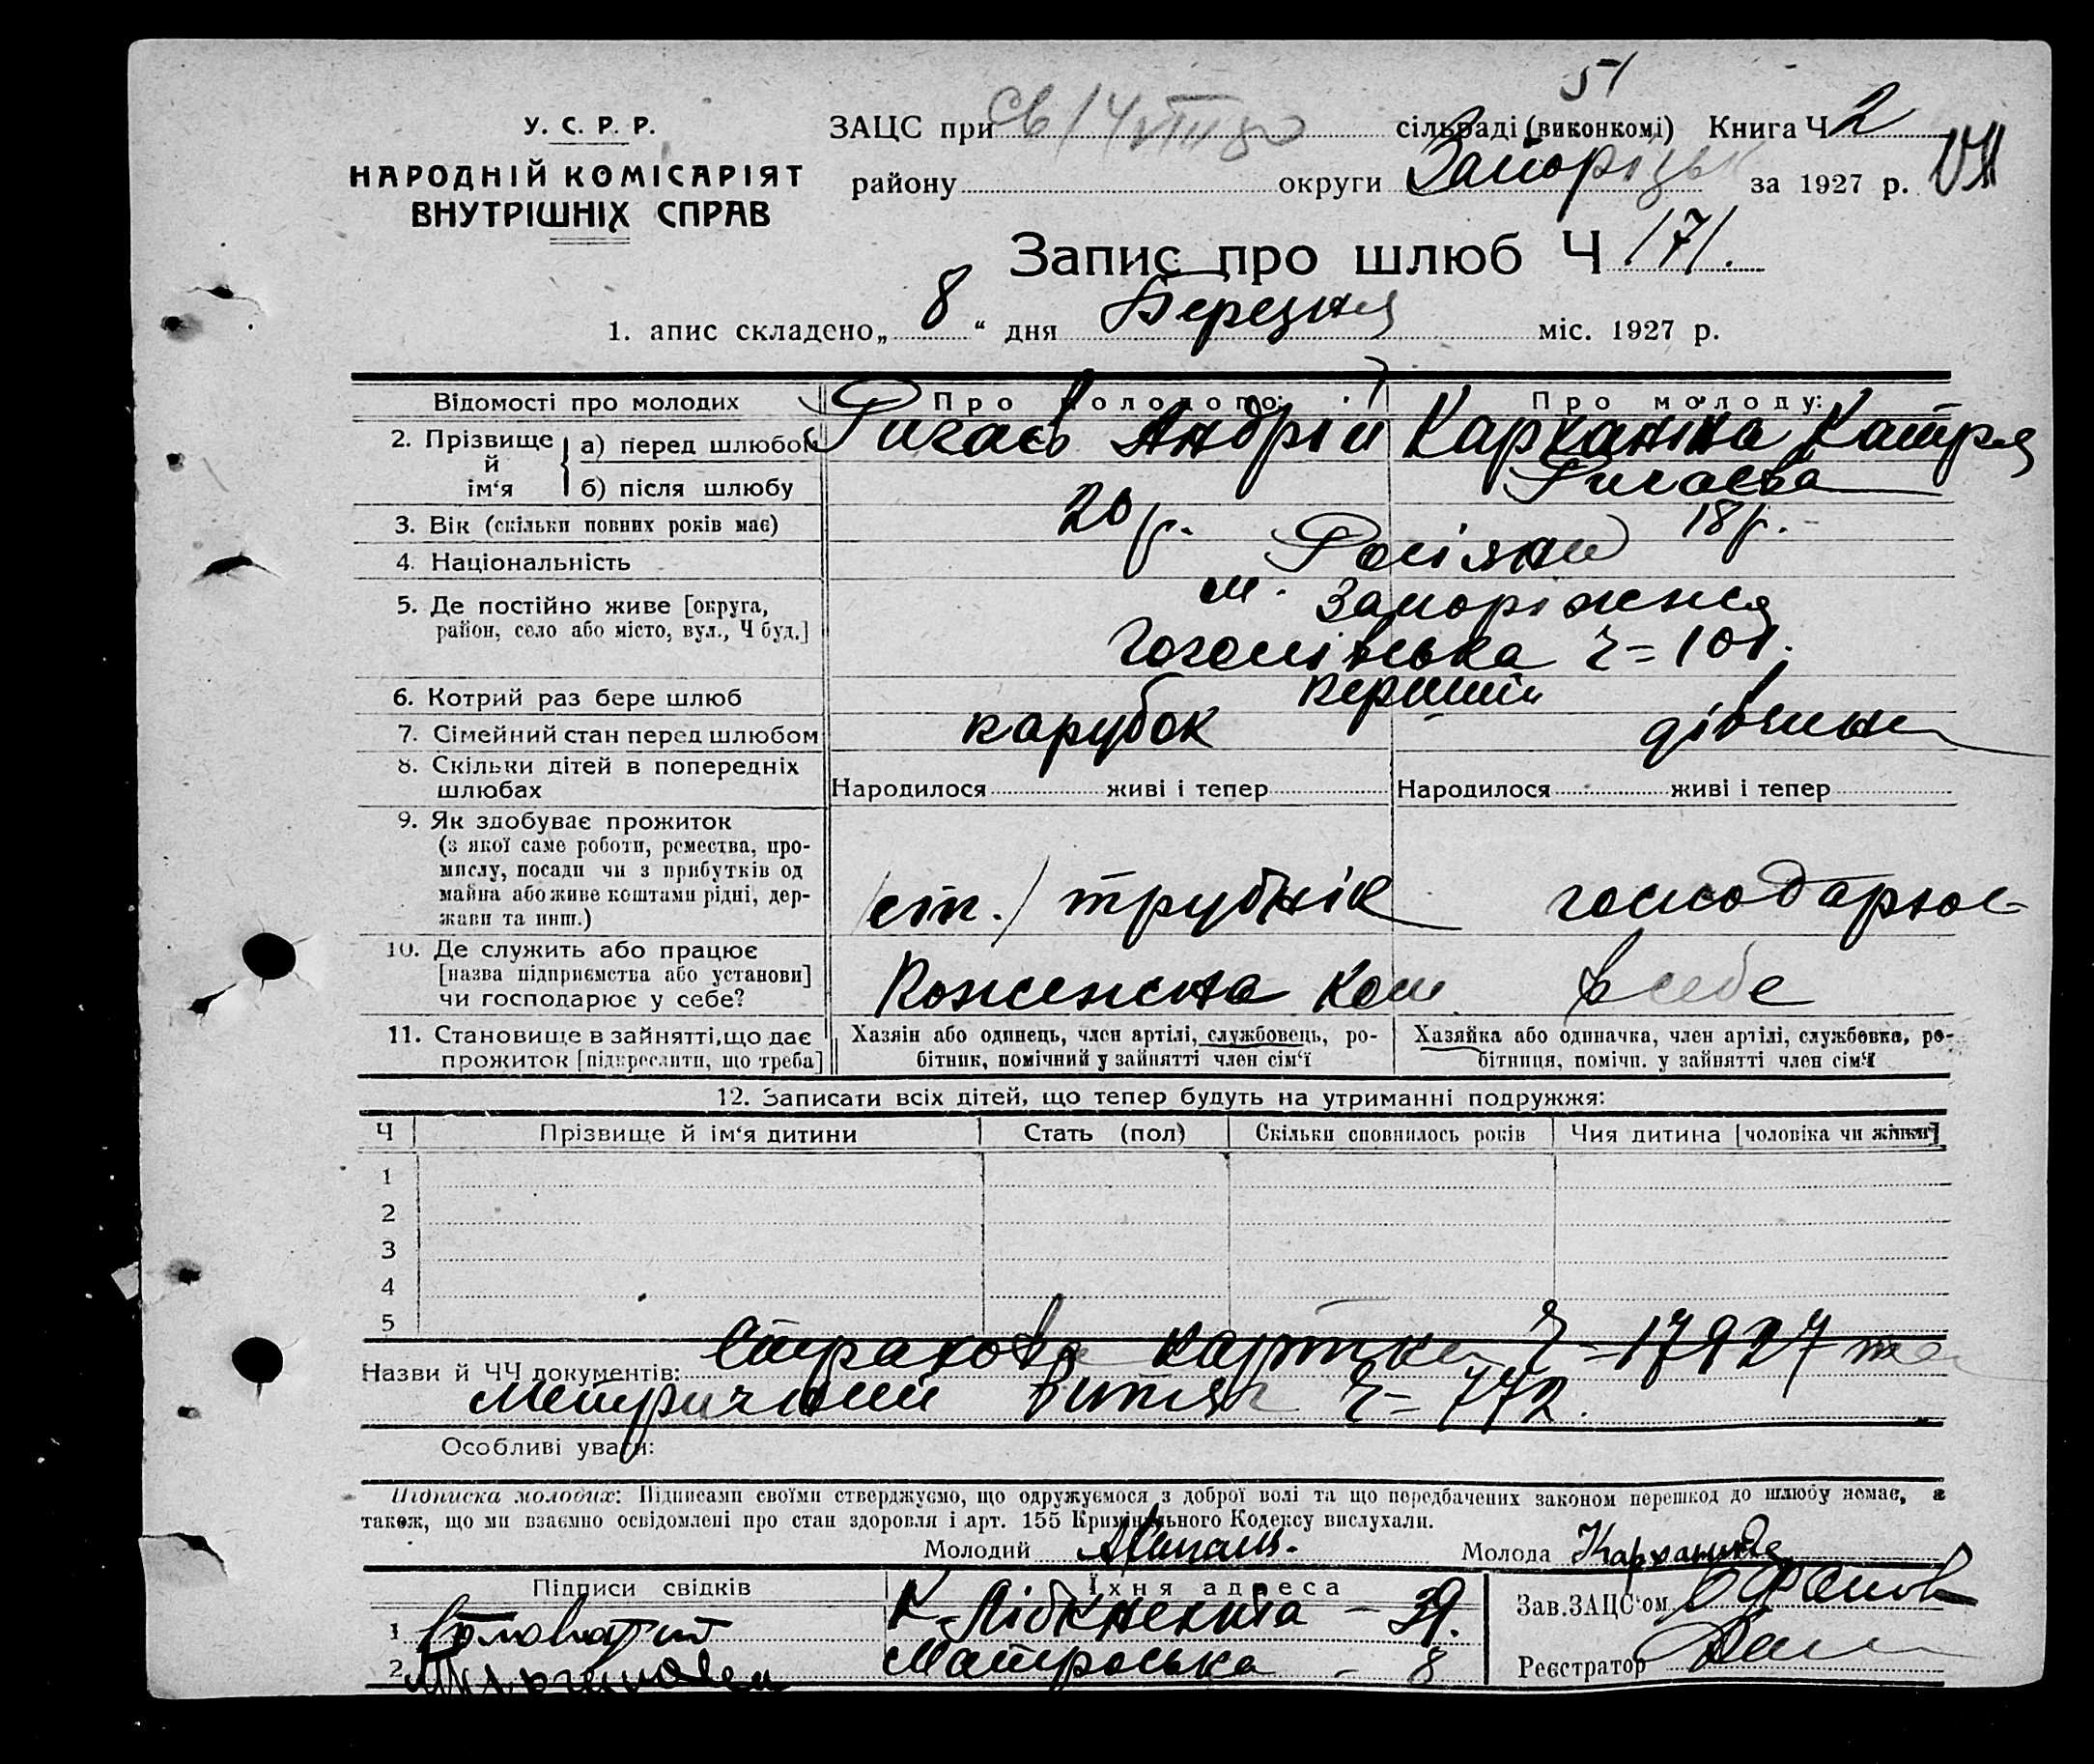 51
У. С. Р. Р.
НАРОДНІЙ КОМІСАРІЯТ
ВНУТРІШНІХ СПРАВ
ЗАЦС при сільраді (виконкомі) Книга Ч 2
району округи Запоріцьк за 1927 р.
Запис про шлюб Ч 171.
1. апис складено „ 8 “ дня Березня міс. 1927 р.
Відомості про молодих Про молодого: Про молоду:
2. Прізвище й ім‘я а) перед шлюбом Ригаєв Андрій Карханіна Катря
б) після шлюбу Ригаєва
3. Вік (скільки повних років має) 20 р. 18 р.
4. Національність Росіяни
5. Де постійно живе [округа, м. Запоріжжя
район, село або місто, вул., Ч буд.] Гоголівська ч = 101.
6. Котрий раз бере шлюб перший
7. Сімейний стан перед шлюбом парубок дівчина
8. Скільки дітей в попередніх
шлюбах Народилося живі і тепер Народилося живі і тепер
9. Як здобуває прожиток
(з якої саме роботи, ремества, про-
мислу, посади чи з прибутків од
майна або живе коштами рідні, дер-
жави та инш.) трубнік господарює
10. Де служить або працює
[назва підприємства або установи] Пожежна Ком в себе
чи господарює у себе?
11. Становище в зайнятті, що дає Хазяін або одинець, член артілі, службовець, ро- Хазяйка або одиначка, член артілі, службовка, ро-
прожиток [підкреслити, що треба] бітник, помічний у зайнятті член сім‘ї бітниця, помічн. у зайнятті член сім‘ї
12. Записати всіх дітей, що тепер будуть на утриманні подружжя:
Ч Прізвище й ім‘я дитини Стать (пол) Скільки сповнилось років Чия дитина [чоловіка чи жінки]
1
2
3
4
5
Назви й ЧЧ документів: Страхова картка Ч = 17927 та
метричний витяг Ч = 772.
Особливі уваги:
Підписка молодих: Підписами своїми стверджуємо, що одружуємося з доброї волі та що передбачених законом перешкод до шлюбу немає, а
також, що ми взаємно освідомлені про стан здоровля і арт. 155 Кримінального Кодексу вислухали.
Молодий Молода Карханина
Підписи свідків Їхня адреса Зав. ЗАЦС‘ом
1 Головатий К. Лібкнехта – 39.
2 Матроська – 8 Реєстратор